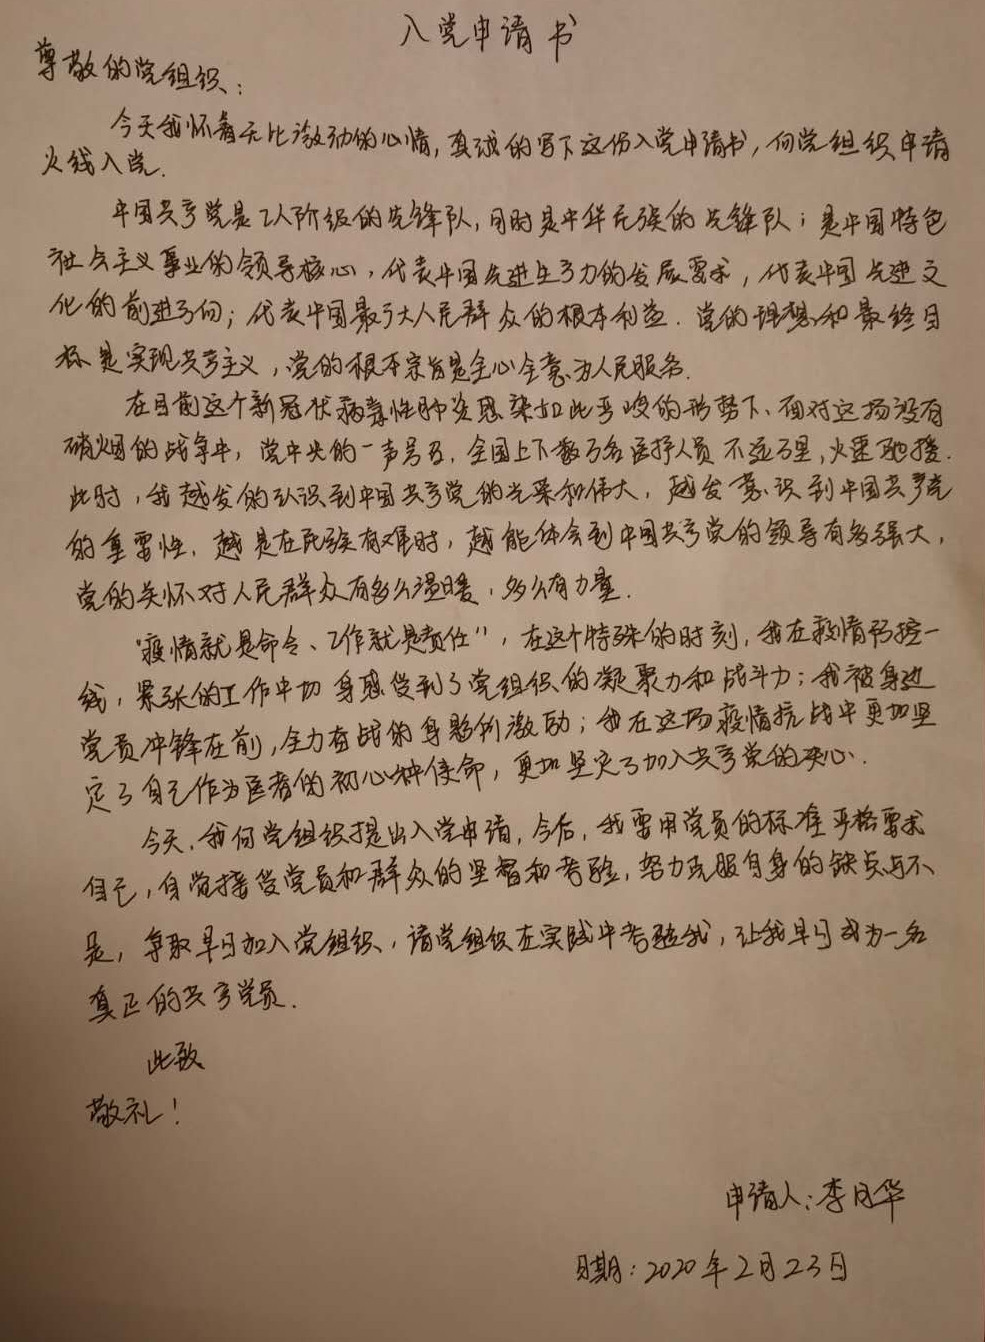 入党申请书
尊敬的党组织：
今天我怀着无比激动的心情，真诚的写下这份入党申请书，向党组织申请
火线入党.
中国共产党是工人阶级的先锋队，同时是中华民族的先锋队；是中国特色
社会主义事业的领导核心，代表中国先进生产力的发展要求，代表中国先进文
化的前进方向；代表中国最广大人民群众的根本利益.党的理想和最终目
标是实现共产主义，党的根本宗旨是全心全意为人民服务.
在目前这个新冠状病毒性肺炎感染如此严峻的形势下、面对这场没有
硝烟的战争中，党中央的一声号召，全国上下数万名医护人员不远万里，火速驰援.
此时，我越发的认识到中国共产党的光荣和伟大，越发意识到中国共产党
的重要性.越是在民族有难时，越能体会到中国共产党的领导有多强大，
党的关怀对人民群众有多么温暖，多么有力量.
“疫情就是命令、工作就是责任”，在这个特殊的时刻，我在疫情防控一
线，紧张的工作中切身感受到了党组织的凝聚力和战斗力；我被身边
党员冲锋在前，全力奋战的身影所激励；我在这场疫情抗战中更加坚
定了自己作为医者的初心和使命，更加坚定了加入共产党的决心.
今天，我向党组织提出入党申请，今后，我要用党员的标准严格要求
自己，自觉接受党员和群众的监督和考验，努力克服自身的缺点与不
足，争取早日加入党组织，请党组织在实践中考验我，让我早日成为一名
真正的共产党员.
此致
敬礼！
申请人：李月华
日期：2020年2月23日